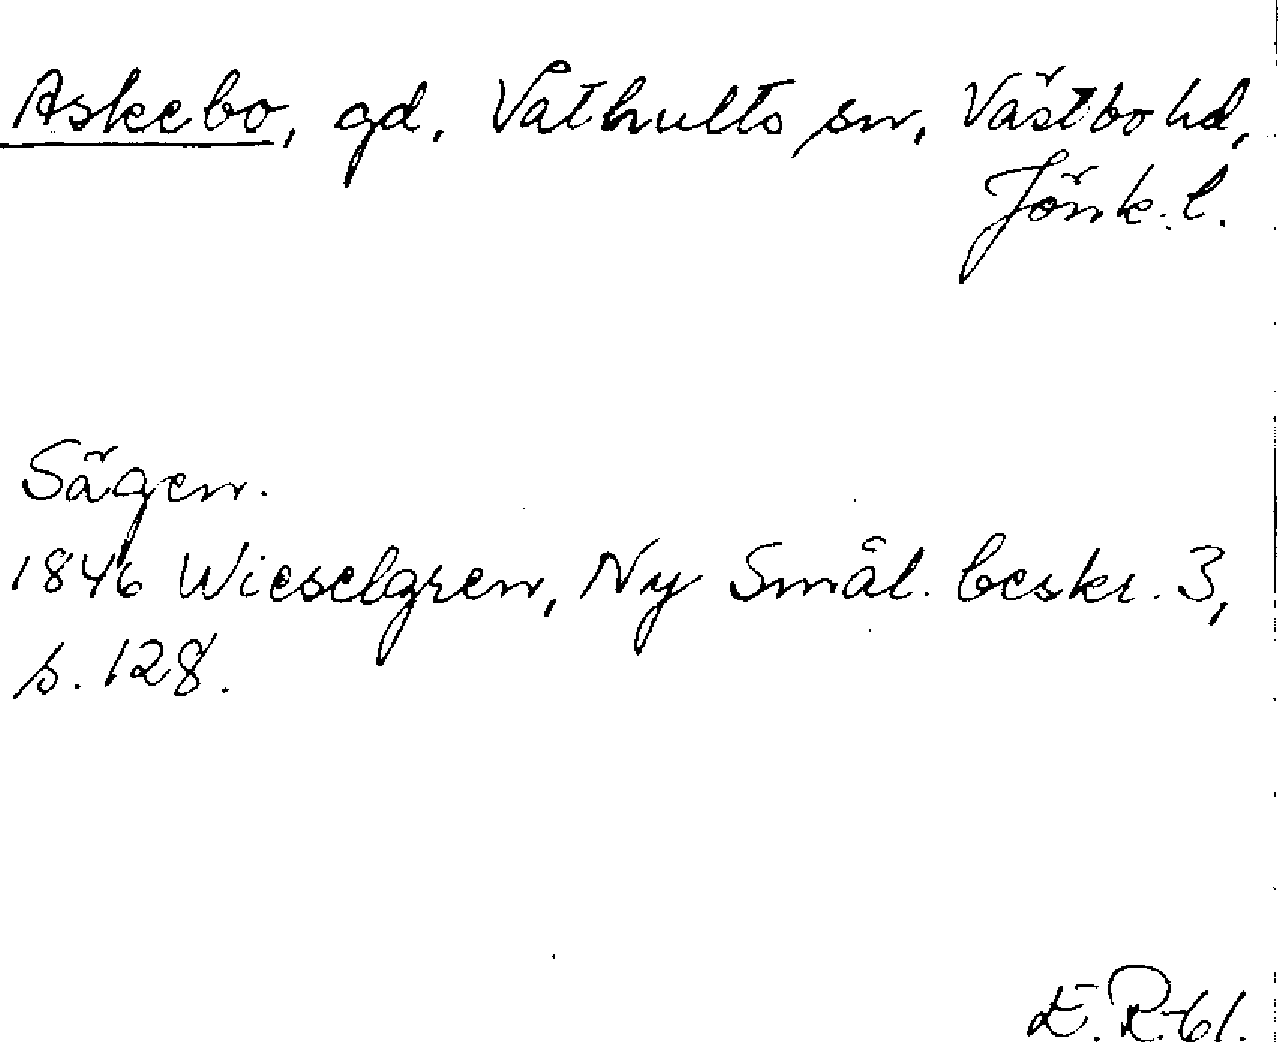 Askebo, gd, Våthults sn, Västbo hd,
Jönk. l.
Sägen.
1846 Wieselgren, Ny Smål. beskr. 3,
s. 128.
E. R. 61.